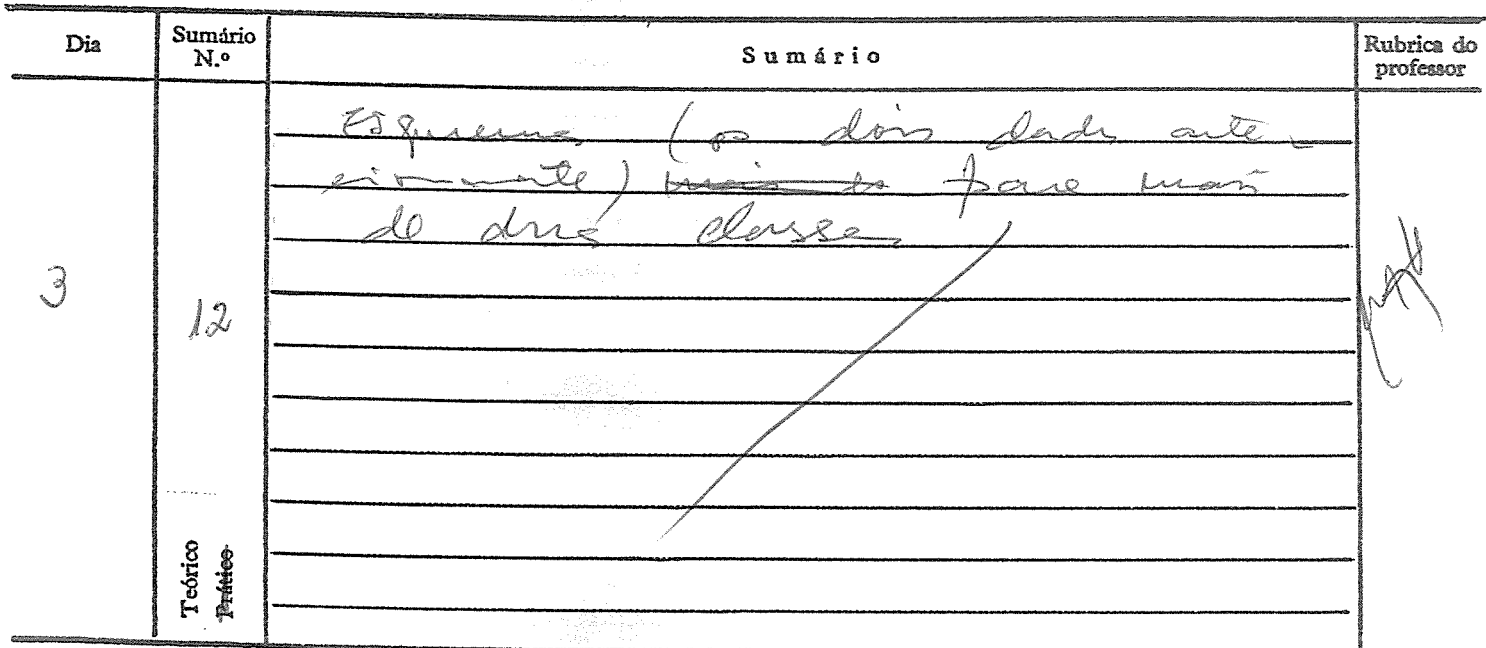 Dia
Sumário N.º
Sumário
Rubrica do professor
3
12
Teórico
Prático
Esquema (os dois dados ante-
riormente) para mais
de duas classes